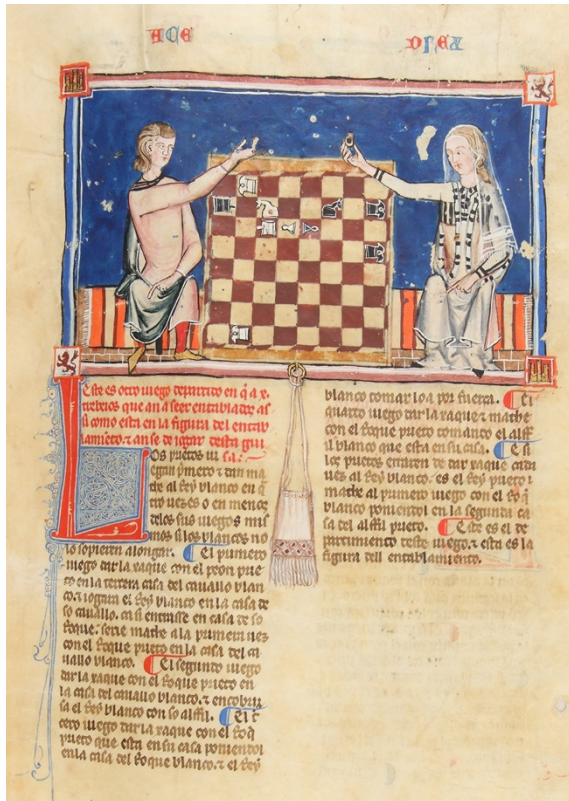 Este es otro iuego departido en q̃ a x.
trebeios que an a seer entablados as
si como esta en la figura del entab
lamiento. ⁊ an se de iogar desta gui
sa.
Los prietos iu
egan p̃mero ⁊ dan ma
the al Rey blanco en q̃
tro uezes o en menos
delos sus iuegos mis
mos si los blancos no
lo sopieren alongar. El primero
iuego dar la xaque con el peon prie
to en la terçera casa del cauallo blan
co. ⁊ iogara el Rey blanco en la casa de
so cauallo. ca si entrasse en casa de so
Roque. serie mathe a la primera uez
con el Roque prieto en la casa del ca
uallo blanco. El segundo iuego
dar la xaque con el Roque prieto en
la casa del cauallo blanco. ⁊ encobrir
sa el Rey blanco con so alffil. El t̃
cero iuego dar la xaque con el Roq̃
prieto que esta en su casa poniendol
en la casa del Roque blanco. ⁊ el Rey
blanco tomar lo a por fuerça. El
quarto iuego dar la xaque ⁊ mathe
con el Roque prieto tomando el alffi
l blanco que esta en su casa. E si
los prietos erraren de dar xaque cada
uez al Rey blanco. es el Rey prieto
mathe al primero iuego con el Roq̃
blanco poniendol en la segunda ca
sa del alffil prieto. Este es el de
partimiento deste iuego. ⁊ esta es la
figura dell entablamiento.